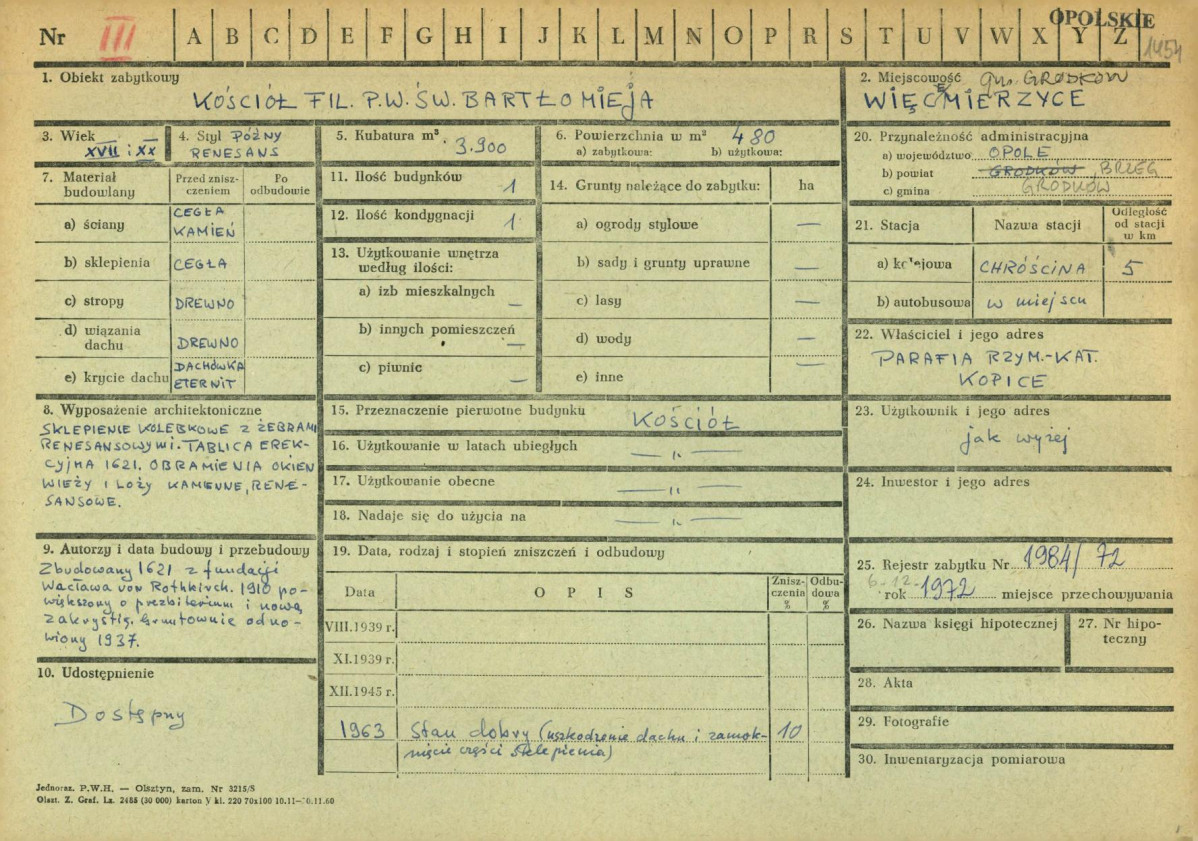 OPOLSKIE
Nr III A B C D E F G H I J K L M N O P R S T U V W X Y Z
1454
1. Obiekt zabytkowy
KOŚCIÓŁ FIL. P.W. ŚW. BARTŁOMIEJA
2. Miejscowość gm. GRODKÓW
WIĘCMIERZYCE
3. Wiek
XVII i XX
4. Styl PÓŹNY
RENESANS
5. Kubatura m³ 3.900
6. Powierzchnia w m² 480
a) zabytkowa: b) użytkowa:
7. Materiał budowlany
Przed zniszczeniem
Po odbudowie
a) ściany CEGŁA
KAMIEŃ
b) sklepienia CEGŁA
c) stropy DREWNO
d) wiązania
dachu DREWNO
e) krycie dachu DACHÓWKA
ETERNIT
8. Wyposażenie architektoniczne
SKLEPIENIE KOLEBKOWE Z ŻEBRAMI
RENESANSOWYMI. TABLICA EREK-
CYJNA 1621. OBRAMIENIA OKIEN
WIEŻY I LOŻY KAMIENNE, RENE-
SANSOWE.
9. Autorzy i data budowy i przebudowy
Zbudowany 1621 z fundacji
Wacława von Rothkirch. 1910 po-
większony o prezbiterium i nową
zakrystię. Gruntownie odno-
wiony 1937.
10. Udostępnienie
Dostępny
11. Ilość budynków 1
12. Ilość kondygnacji 1
13. Użytkowanie wnętrza
według ilości:
a) izb mieszkalnych —
b) innych pomieszczeń —
c) piwnic —
14. Grunty należące do zabytku: ha
a) ogrody stylowe —
b) sady i grunty uprawne —
c) lasy —
d) wody —
e) inne —
15. Przeznaczenie pierwotne budynku KOŚCIÓŁ
16. Użytkowanie w latach ubiegłych — „ —
17. Użytkowanie obecne — „ —
18. Nadaje się do użycia na — „ —
19. Data, rodzaj i stopień zniszczeń i odbudowy
Data O P I S Zniszczenia % Odbudowa %
VIII.1939 r.
XI.1939 r.
XII.1945 r.
1963 Stan dobry (uszkodzenie dachu i zamok- 10
nięcie części sklepienia)
20. Przynależność administracyjna
a) województwo OPOLE
b) powiat GRODKÓW, BRZEG
c) gmina GRODKÓW
21. Stacja Nazwa stacji Odległość
od stacji
w km
a) kolejowa CHRÓŚCINA 5
b) autobusowa w miejscu
22. Właściciel i jego adres
PARAFIA RZYM.-KAT.
KOPICE
23. Użytkownik i jego adres
jak wyżej
24. Inwestor i jego adres
25. Rejestr zabytku Nr 1984/72
6-12-
rok 1972 miejsce przechowywania
26. Nazwa księgi hipotecznej
27. Nr hipo-
teczny
28. Akta
29. Fotografie
30. Inwentaryzacja pomiarowa
Jednoraz. P.W.H. — Olsztyn, zam. Nr 3215/S
Olszt. Z. Graf. Lz. 2488 (30 000) karton V kl. 220 70x100 10.11—
.11.60